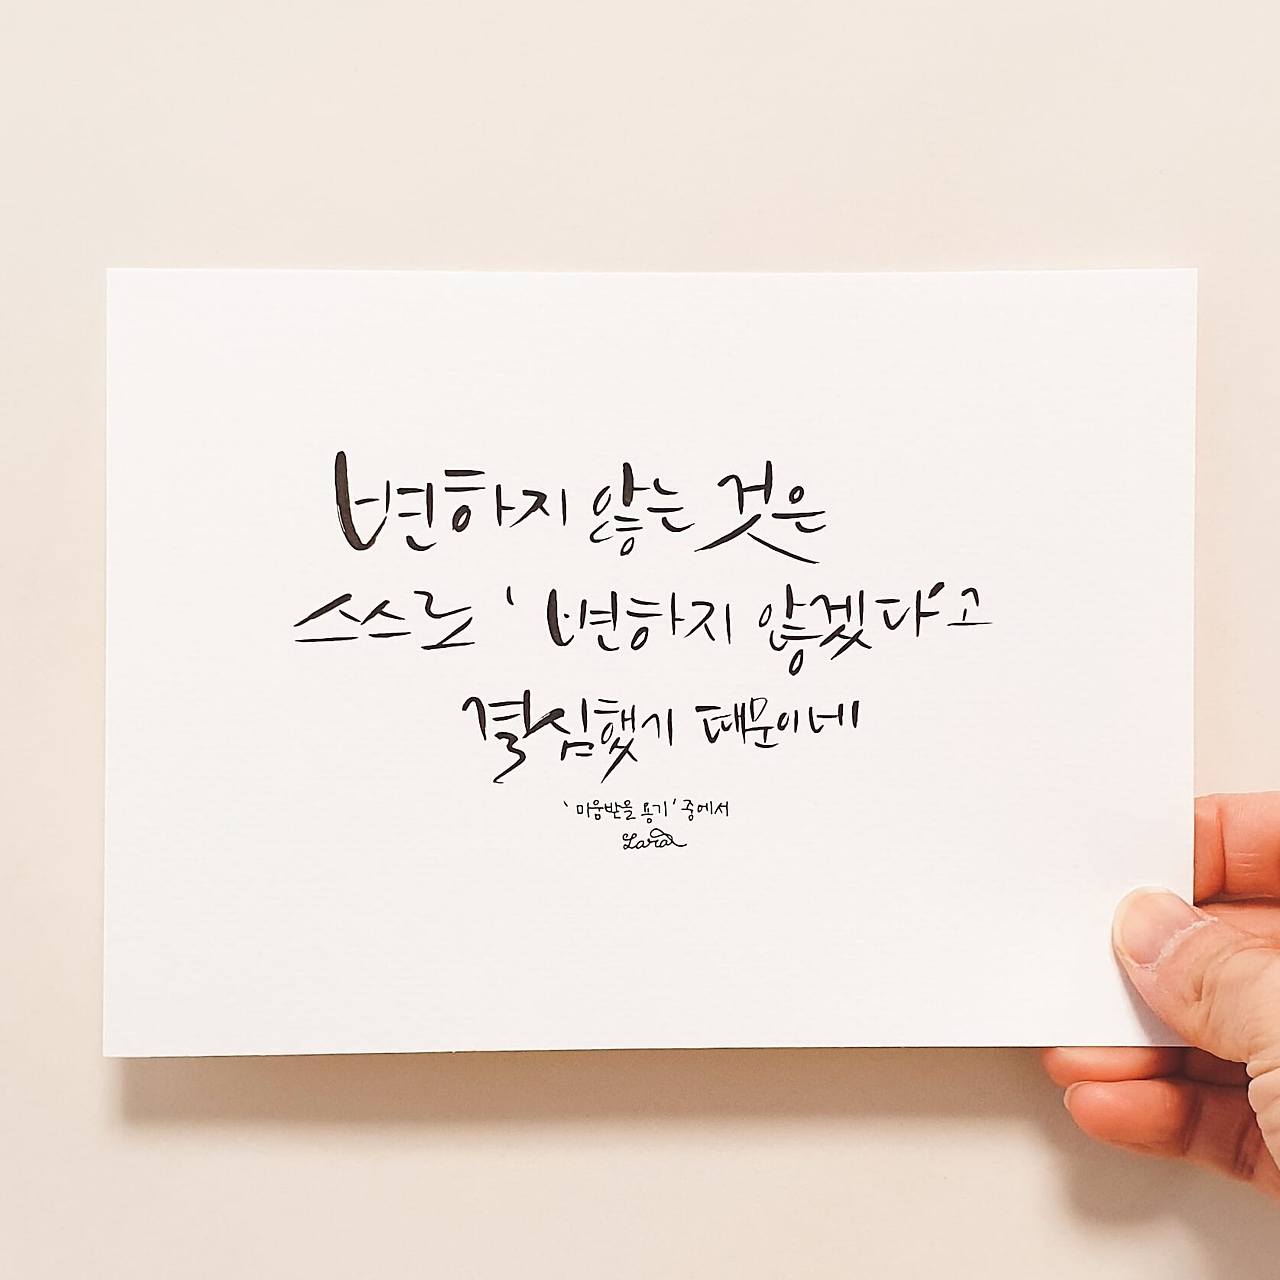 변하지 않는 것은
스스로 '변하지 않겠다'고
결심했기 때문이네
'미움받을 용기' 중에서
Lara